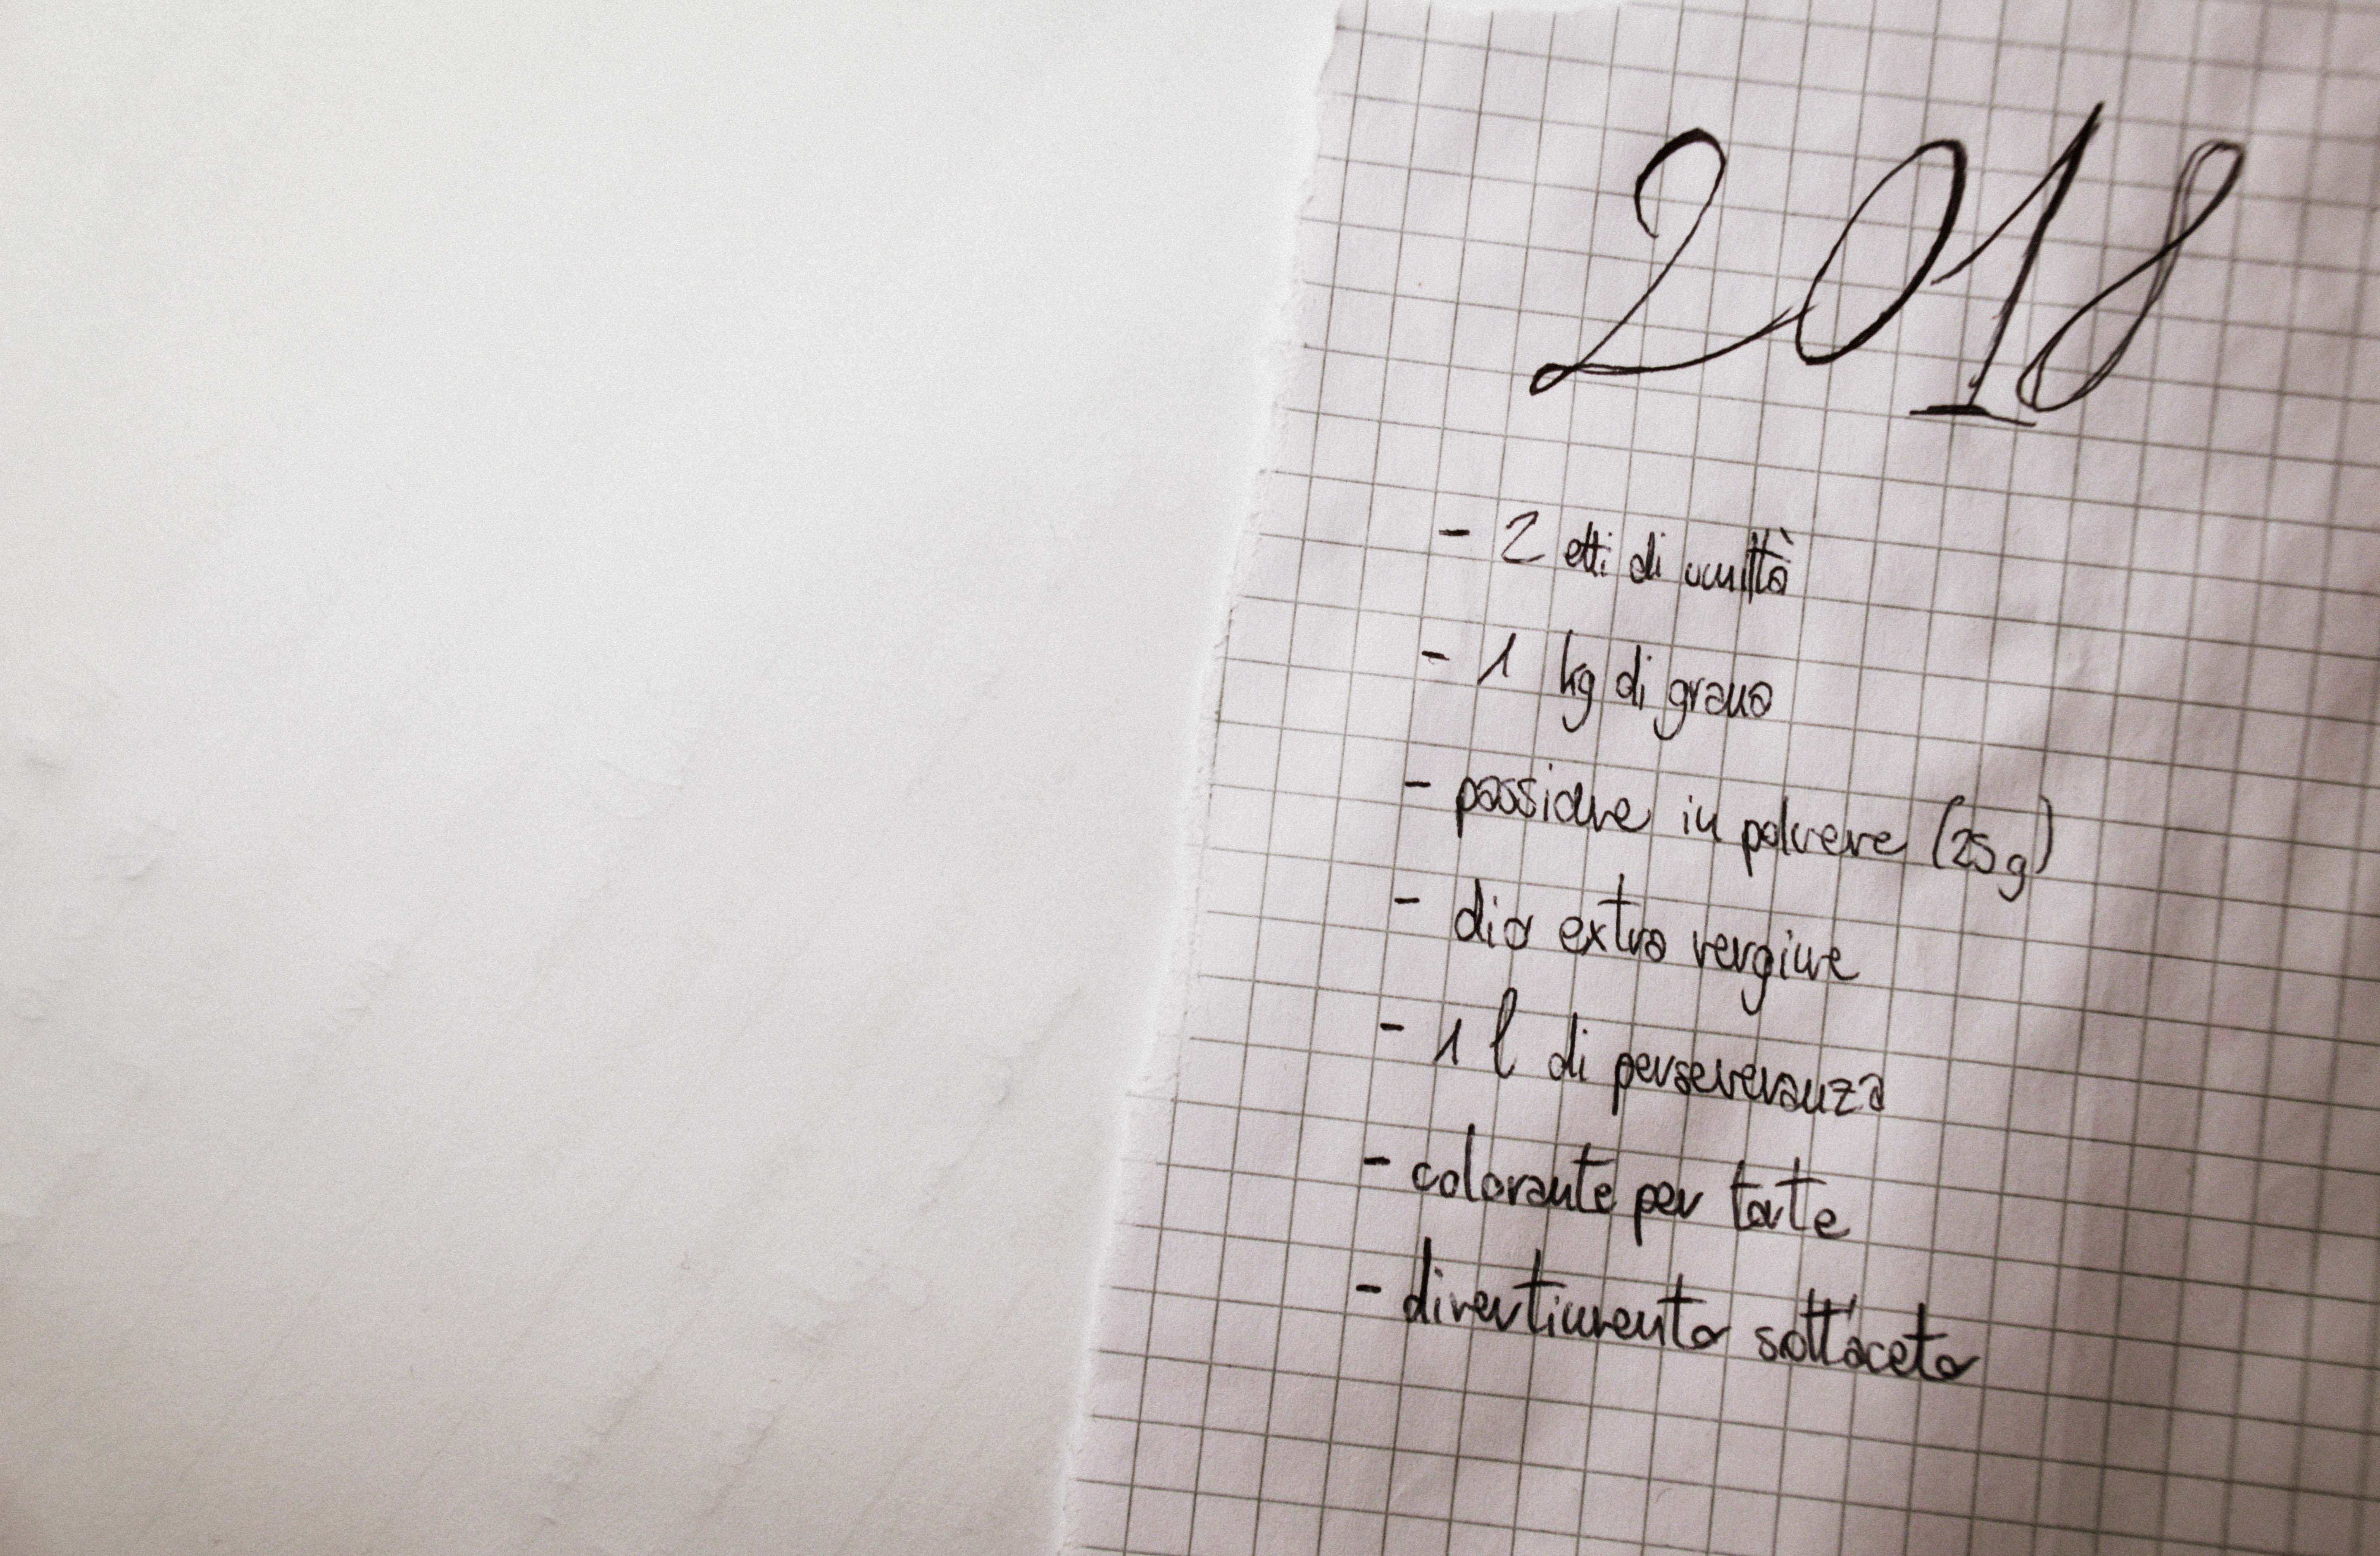 2018
- 2 etti di umiltà
- 1 kg di grano
- passione in polvere (25g)
- olio extra vergine
- 1 l di perseveranza
- colorante per torte
- divertimento sott'aceto